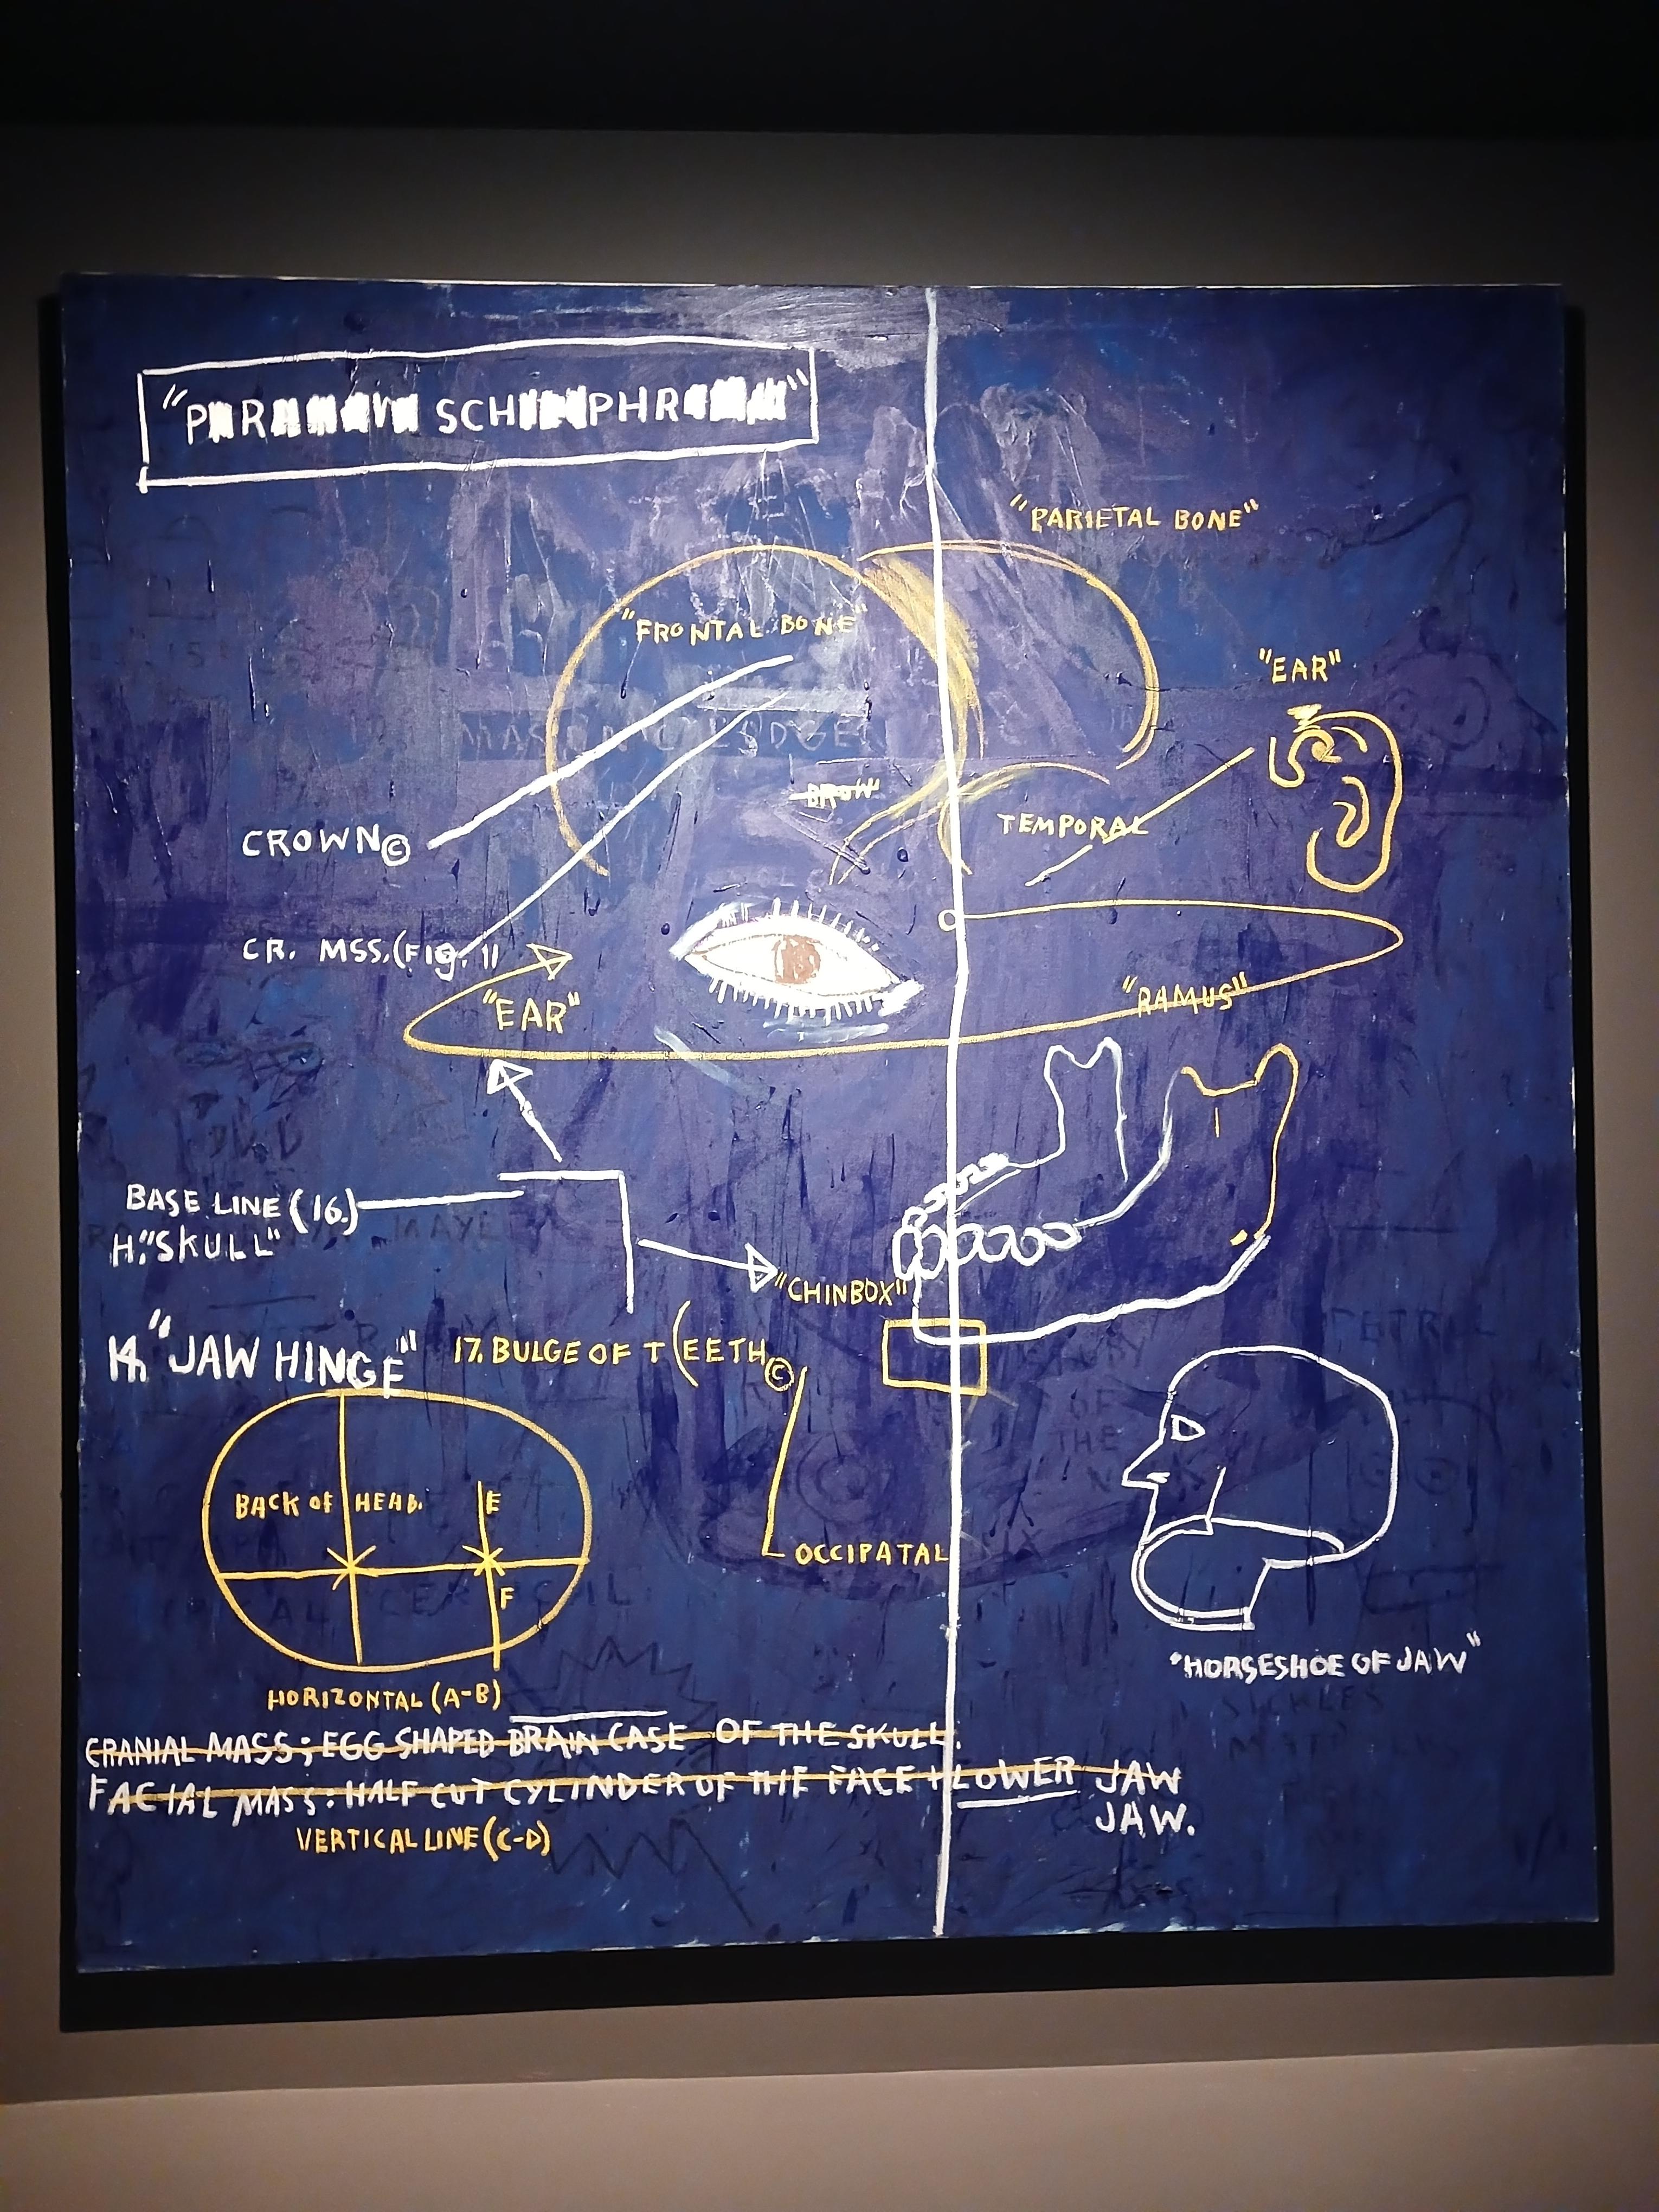 "PARANOID SCHIZOPHRENIA"
"PARIETAL BONE"
"FRONTAL BONE"
"EAR"
BROW
TEMPORAL
CROWN©
CR. MSS. (FIG. 1)
"EAR"
"RAMUS"
BASE LINE (16.)
H. "SKULL"
"CHINBOX"
"JAW HINGE"
17. BULGE OF T(EETH©
BACK OF HEAD.
E
OCCIPATAL
F
"HORSESHOE OF JAW"
HORIZONTAL (A-B)
CRANIAL MASS; EGG SHAPED BRAIN CASE OF THE SKULL.
FACIAL MASS: HALF CUT CYLINDER OF THE FACE + LOWER JAW
JAW.
VERTICAL LINE (C-D)